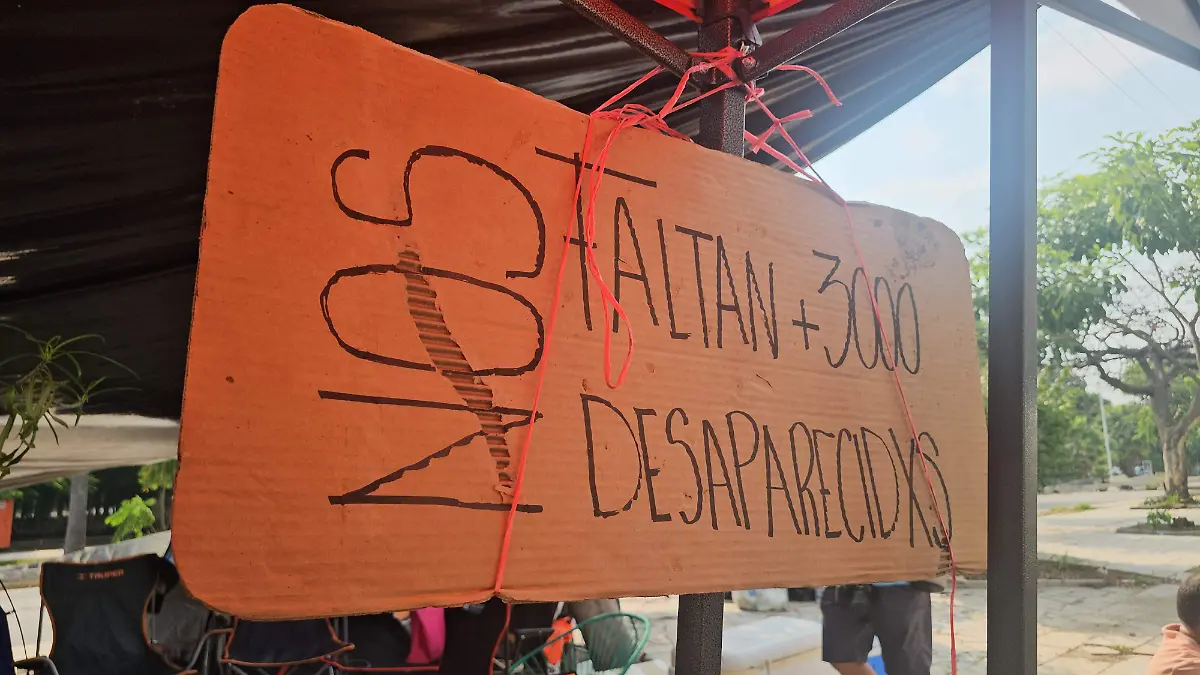 NOS
FALTAN +3000
DESAPARECIDXS
TRUPER